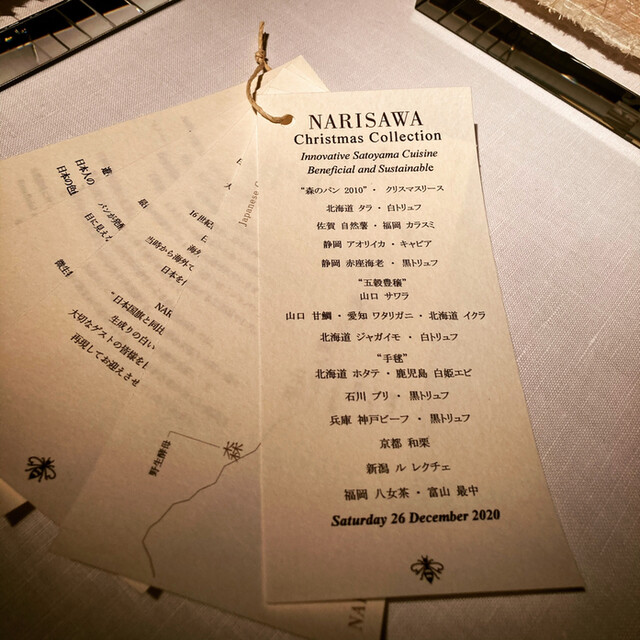 NARISAWA
Christmas Collection
Innovative Satoyama Cuisine
Beneficial and Sustainable
“森のパン 2010”・ クリスマスリース
北海道 タラ・白トリュフ
佐賀 自然薯・福岡 カラスミ
静岡 アオリイカ・キャビア
静岡 赤座海老・黒トリュフ
“五穀豊穣”
山口 サワラ
山口 甘鯛・愛知 ワタリガニ・北海道 イクラ
北海道 ジャガイモ・白トリュフ
“手毬”
北海道 ホタテ・鹿児島 白姫エビ
石川 ブリ・黒トリュフ
兵庫 神戸ビーフ・黒トリュフ
京都 和栗
新潟 ル レクチェ
福岡 八女茶・富山 最中
Saturday 26 December 2020
日本人の
日本の色
パンが発酵
目に見え
微生
16世紀
当時から海外で
日本を
Japanese
NAR
“日本国旗と同じ
生成りの白い
大切なゲストの皆様を
再現してお迎えさせ
野生酵母
森
NA